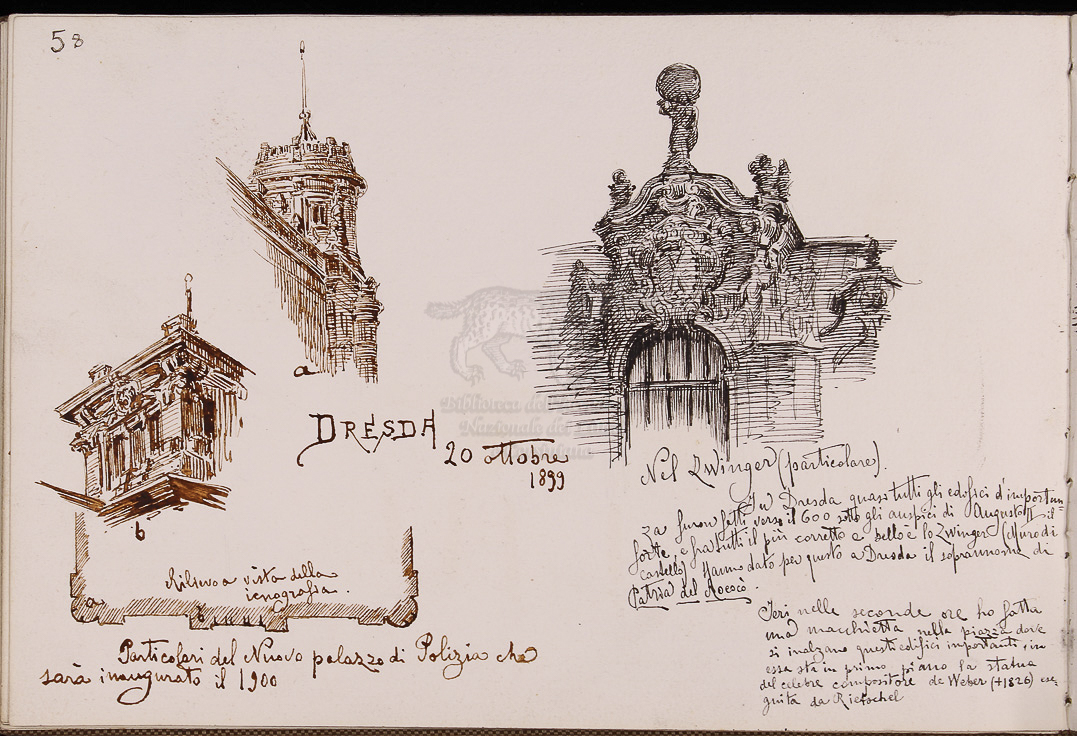 58
a
b
DRESDA
20 ottobre
1899
Nel Zwinger (particolare).
In Dresda quasi tutti gli edifici d'importan-
za furon fatti verso il 600 sotto gli auspici di Augusto II il
forte, e fra tutti il più corretto e bello è lo Zwinger (Muro di
castello) Hanno dato per questo a Dresda il soprannome di
Patria del Rococò.
Ieri nelle seconde ore ho fatta
una macchietta nella piazza dove
si inalzano questi edifici importanti, in
essa sta in primo piano la statua
del celebre compositore de Weber (+1826) ese-
guita da Rietschel
Rilievo a vista della
icnografia.
a
b
Particolari del Nuovo palazzo di Polizia che
sarà inaugurato il 1900
Biblioteca
Nazionale